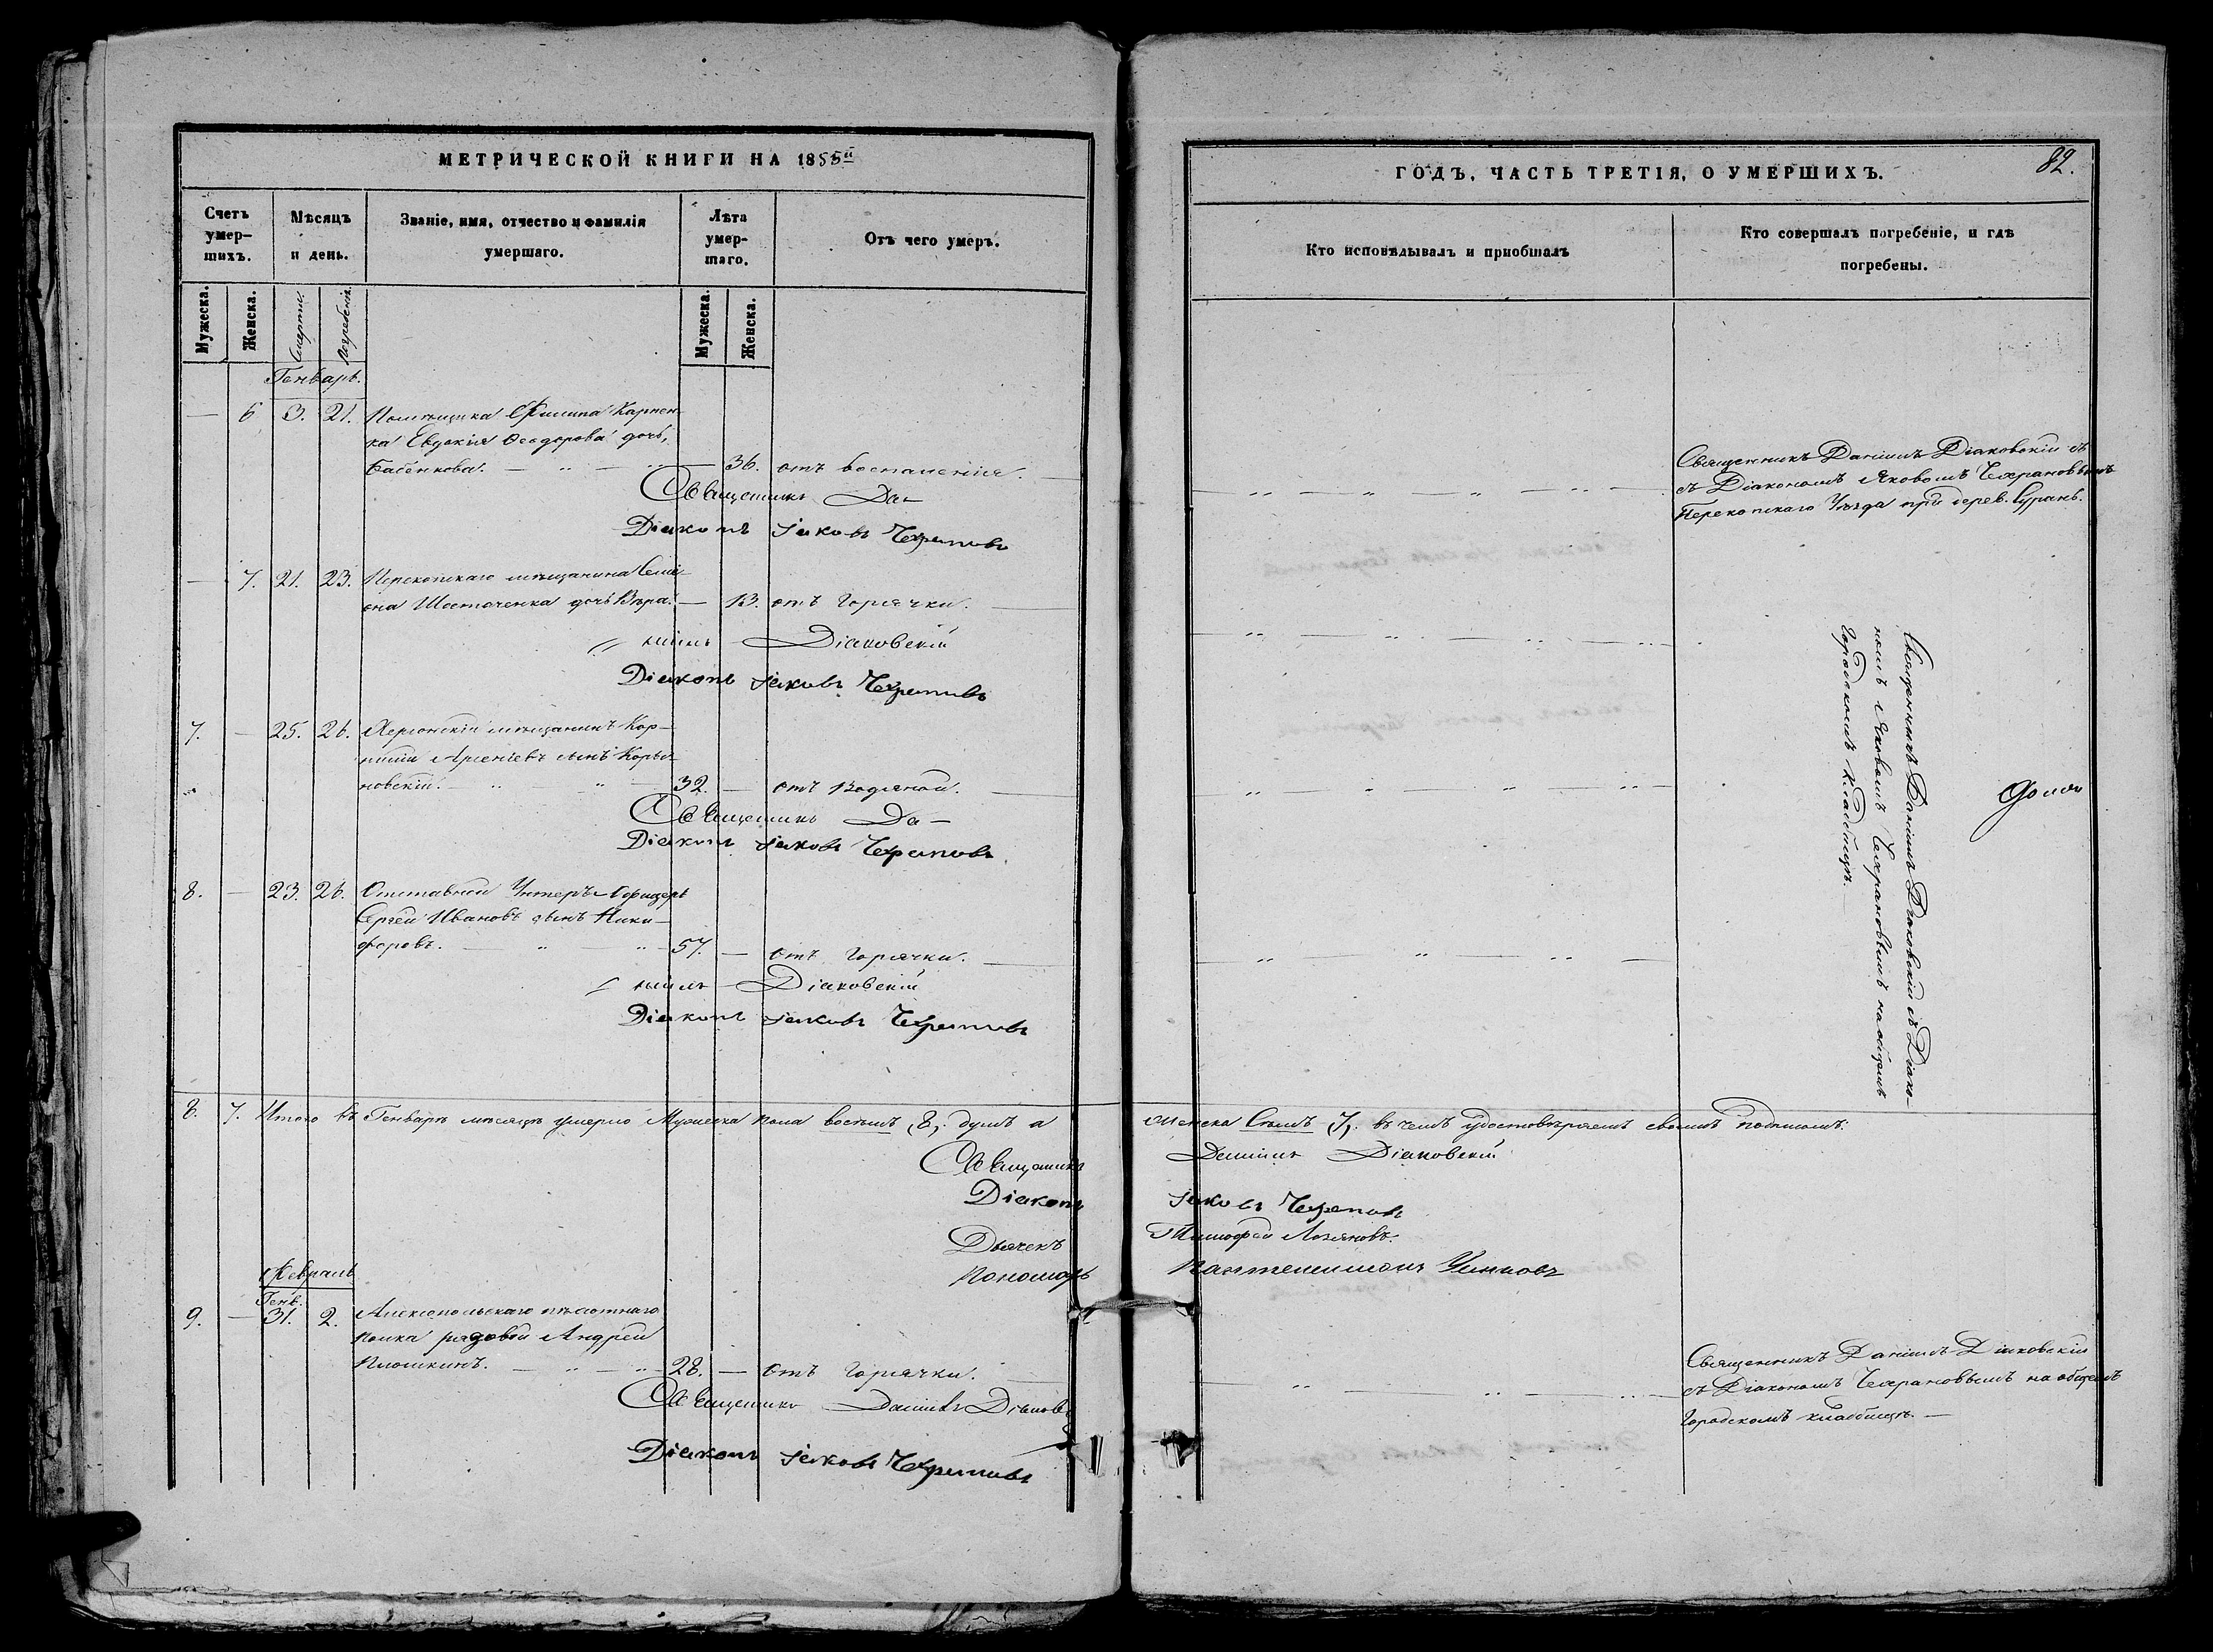 МЕТРИЧЕСКОЙ КНИГИ НА 1855й
Счетъ умер-
шихъ.
Мѣсяцъ
и день.
Званіе, имя, отчество и фамилія
умершаго.
Лѣта
умер-
шаго.
Отъ чего умеръ.
Мужеска.
Женска.
Смерти.
Погребенія.
Мужеска.
Женска.
Генварь.
— 6 3. 21. Помѣщика Филипа Карпен-
ка Евдокія Ѳеодорова дочь,
Бабенкова. — 36. отъ воспаленія.
Священникъ Да-
Діаконъ Іаковъ Чехрановъ
— 7. 21. 23. Перекопскаго мѣщанина Семі-
она Шостаченка дочь Вѣра. — 13. отъ горячки.
ніилъ Діаковскій
Діаконъ Іаковъ Чехрановъ
7. — 25. 26. Херсонскій мѣщанинъ Кор-
нилій Арсеніевъ сынъ
новскій. 32. — отъ водяной.
Священникъ Да-
Діаконъ Іаковъ Чехрановъ
8. — 23. 26. Отставной Унтеръ-Офицеръ
Сергей Ивановъ сынъ Ники-
форовъ. 57. — отъ горячки.
ніилъ Діаковскій
Діаконъ Іаковъ Чехрановъ
8. 7. Итого въ Генварѣ мѣсяцѣ умерло Мужеска пола восемъ, 8, душъ а
Священникъ
Діаконъ
Дьячекъ
Пономарь
Февраль
Генв.
9. — 31. 2. пѣхотнаго
полка рядовой Андрей
Плошкинъ. 28. — отъ горячки.
Священникъ Даніилъ Діаков
Діаконъ Іаковъ Чехрановъ
ГОДЪ, ЧАСТЬ ТРЕТІЯ, О УМЕРШИХЪ.
82.
Кто исповѣдывалъ и пріобщалъ
Кто совершалъ погребеніе, и гдѣ
погребены.
Священникъ Даніилъ Діаковскій съ
съ Діакономъ Яковомъ Чехрановымъ
Перекопскаго Уѣзда при дерев.
Священникъ Даніилъ Діаковскій съ Діако-
номъ Яковомъ Чехрановымъ на общемъ
городскомъ кладбищѣ.
женска Семь 7, въ чемъ удостовѣряемъ своимъ подписомъ:
Даніилъ Діаковскій
Іаковъ Чехрановъ
Тимофей
Пантелеимонъ
Священникъ Даніилъ Діаковскій
съ Діакономъ Чехрановымъ на общемъ
городскомъ кладбищѣ. —